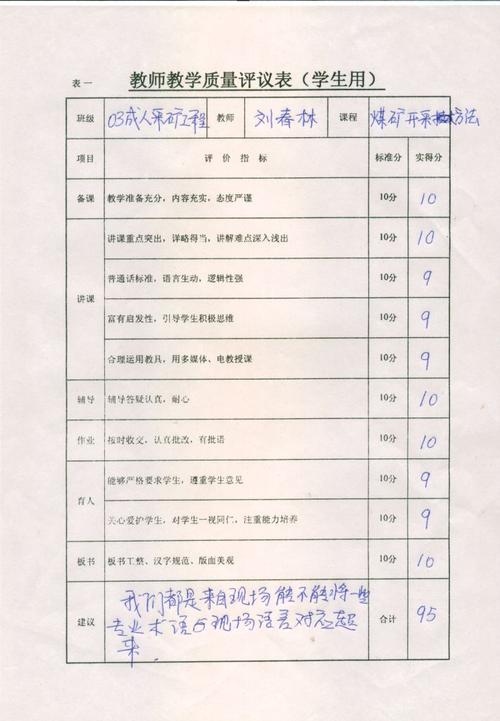 表一
教师教学质量评议表（学生用）
班级 03成人采矿工程 教师 刘春林 课程 煤矿开采技术方法
项目 评价指标 标准分 实得分
备课 教学准备充分，内容充实，态度严谨 10分 10
讲课 讲课重点突出，详略得当，讲解难点深入浅出 10分 10
普通话标准，语言生动，逻辑性强 10分 9
富有启发性，引导学生积极思维 10分 9
合理运用教具，用多媒体、电教授课 10分 9
辅导 辅导答疑认真，耐心 10分 10
作业 按时收交，认真批改，有批语 10分 10
育人 能够严格要求学生，遵重学生意见 10分 9
关心爱护学生，对学生一视同仁，注重能力培养 10分 9
板书 板书工整、汉字规范、版面美观 10分 10
建议 我们都是来自现场能不能将一些
专业术语与现场语言对应起
来. 合计 95